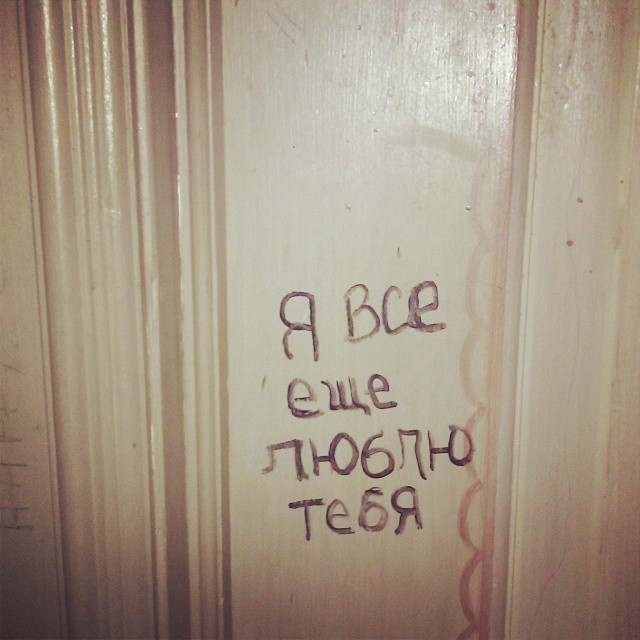 Я все
еще
люблю
тебя